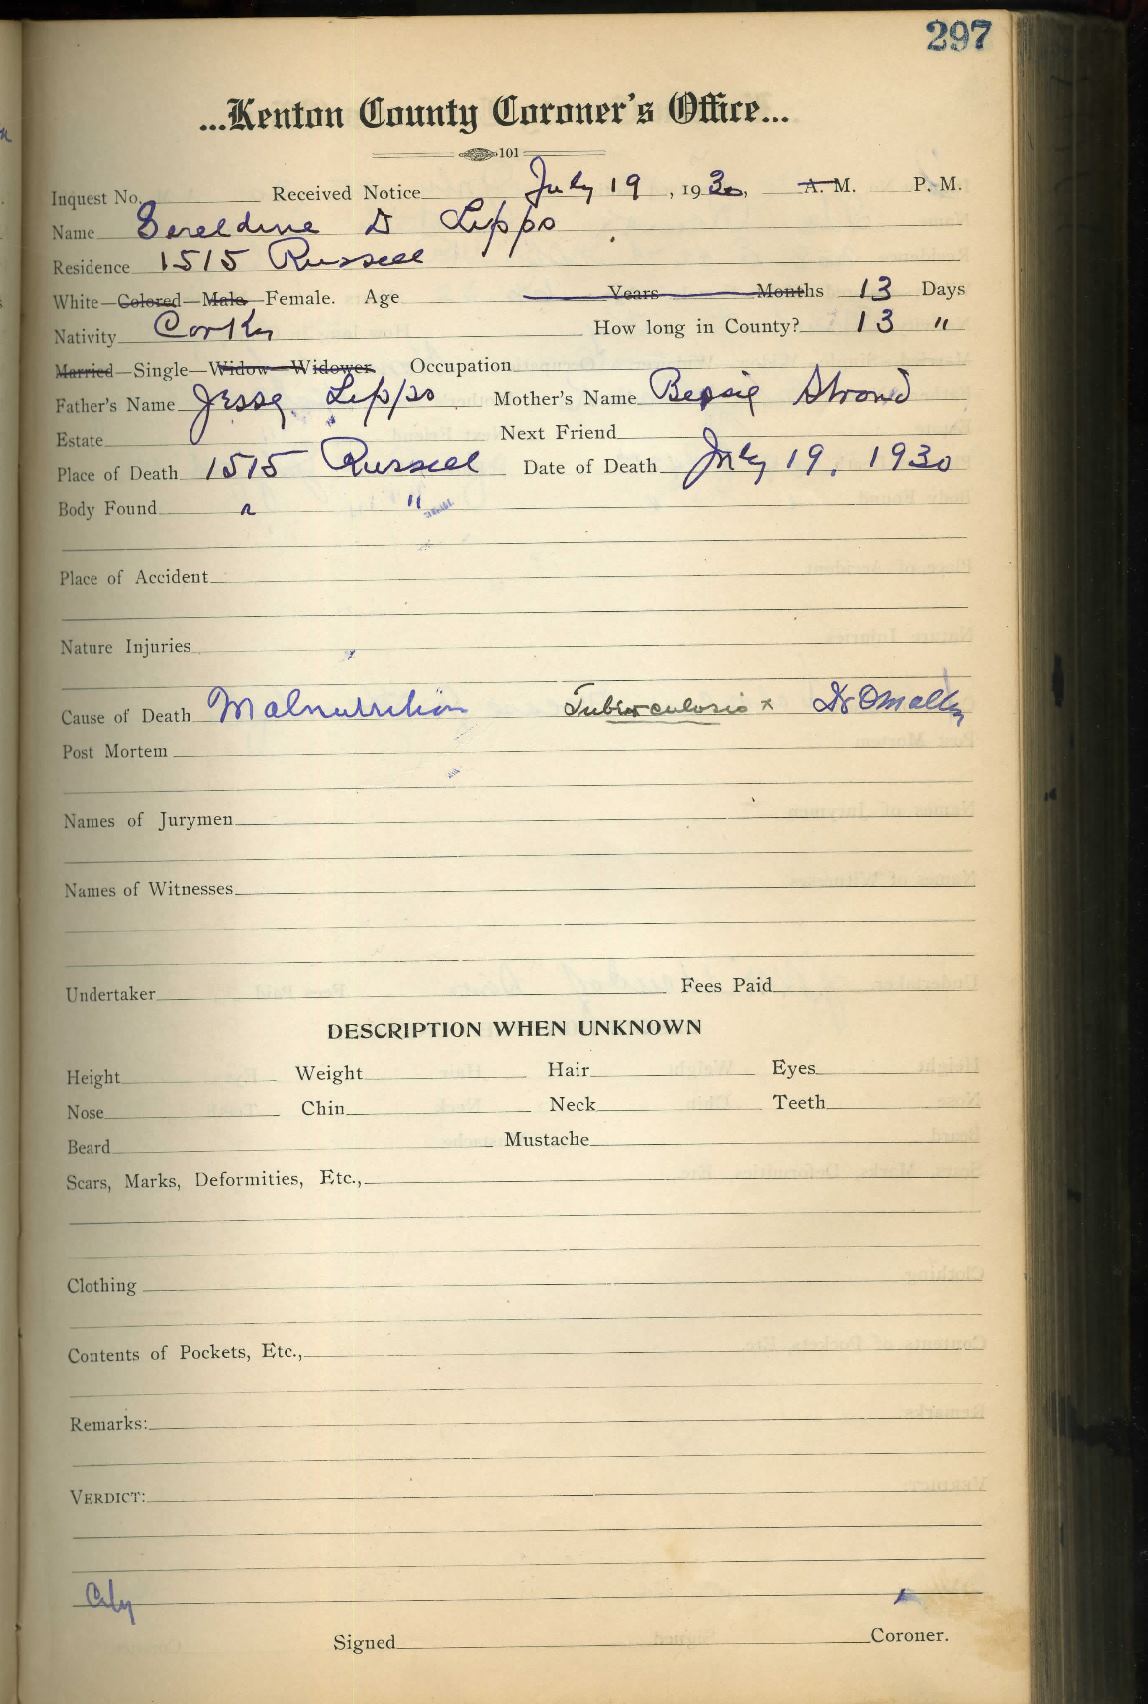 297
...Kenton County Coroner's Office...
101
Inquest No. Received Notice July 19, 1930, A. M. P. M.
Name Gereldine D Lippo
Residence 1515 Russell
White—Colored—Male—Female. Age Years Months 13 Days
Nativity Cov Ky How long in County? 13 "
Married—Single—Widow—Widower. Occupation
Father's Name Jesse Lippo Mother's Name Bessie
Estate Next Friend
Place of Death 1515 Russell Date of Death July 19, 1930
Body Found " "
Place of Accident
Nature Injuries
Cause of Death Malnutrition Tuberculosis x Dr OMalley
Post Mortem
Names of Jurymen
Names of Witnesses
Undertaker Fees Paid
DESCRIPTION WHEN UNKNOWN
Height Weight Hair Eyes
Nose Chin Neck Teeth
Beard Mustache
Scars, Marks, Deformities, Etc.,
Clothing
Contents of Pockets, Etc.,
Remarks:
VERDICT:
City
Signed Coroner.